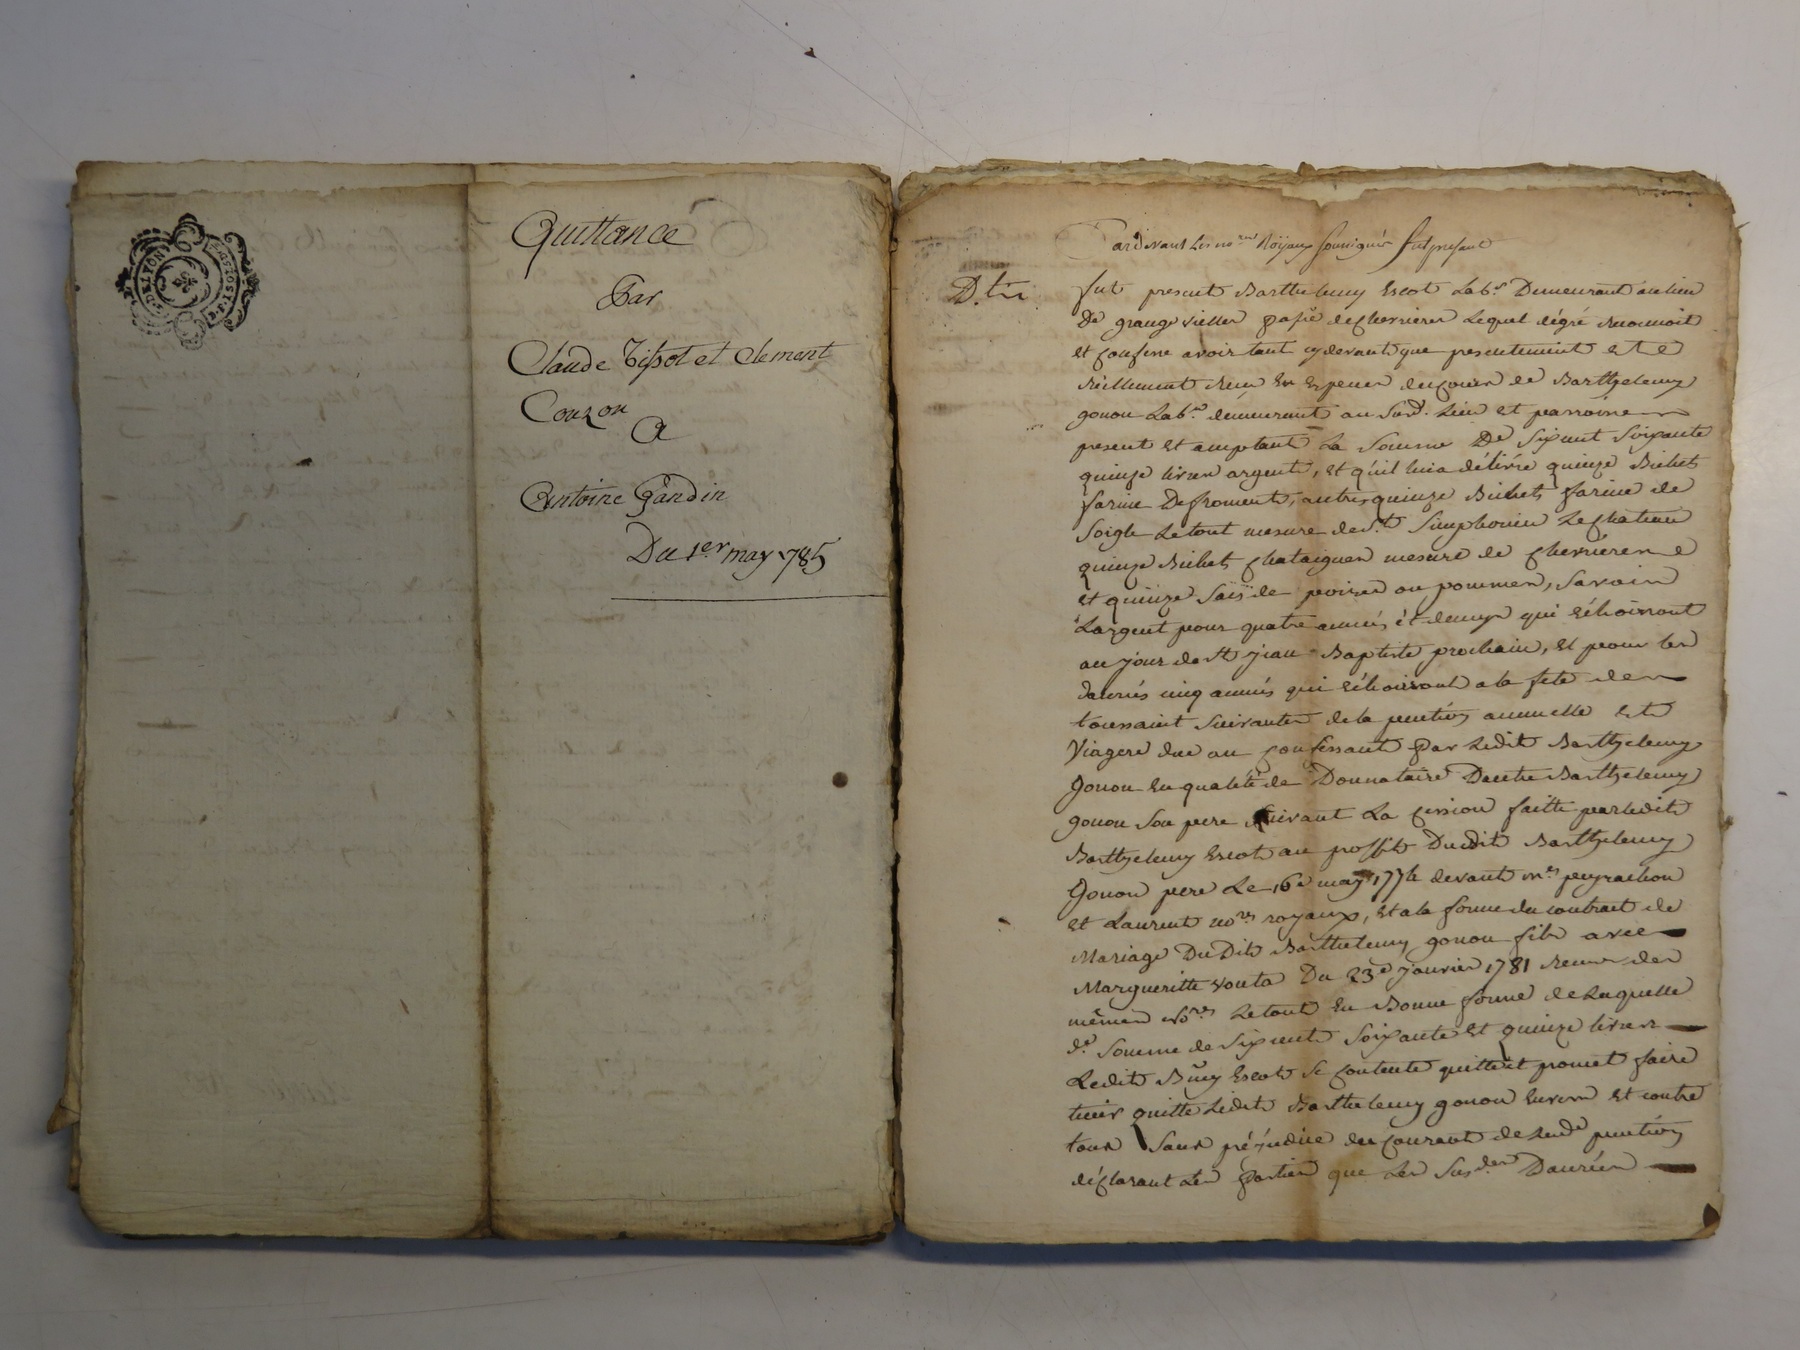 Quittance
Par
Claude Tissot et Clement
Couzon
A
Antoine Gandin
Du 1er may 1785
Pardevant les no.res Royaux soussignés fut present
D.tn
fut present Barthelemy Escot Lab.r Demeurant au lieu
De grange vieller passe de Chevrieres Lequel de gré reconnoit
et confesse avoir tant cy devant que presentement esté
réellement reçu en especes de cours de Barthelemy
gonon Lab.r demeurant au susd. lieu et parroisse
present et acceptant La somme De six cent soixante
quinze livres argent, et qu'il luia délivré quinze Bichets
farine De froment, autres quinze Bichets farine de
soigle Le tout mesure de S.t Simphorien Le chateau
quinze Bichets chataignes mesure de chevrieres
et quinze sais de poires ou pommes, savoir
L'argent pour quatre années et demys qui échoirront
au jour de St jean Baptiste prochain, et pour les
danrés cinq années qui échoirront a la fete de
toussaint suivante de la pention annuelle et
Viagere due au confessant par Ledit Barthelemy
Gonon en qualité de Donnataire D'autre Barthelemy
gonon son pere suivant La cession faitte par ledit
Barthelemy Escot au proffit Dudit Barthelemy
Gonon pere Le 16e may 1774 devant m.es peyrachon
et Laurent no.res royaux, et a la forme du contrait de
Mariage Du Dit Barthelemy gonon fils avec
Margueritte vouta Du 23e janvier 1781 reçu des
mêmes No.res Le tout en Bonne forme de laquelle
d.e somme de six cents soixante et quinze livres
Ledit B.my Escot se contente quitte et promet faire
tenir quitte Ledit Barthelemy gonon envers et contre
tous sans préjudice du courant de lad.e pention
déclarant Les parties que Les sus.des Danrées